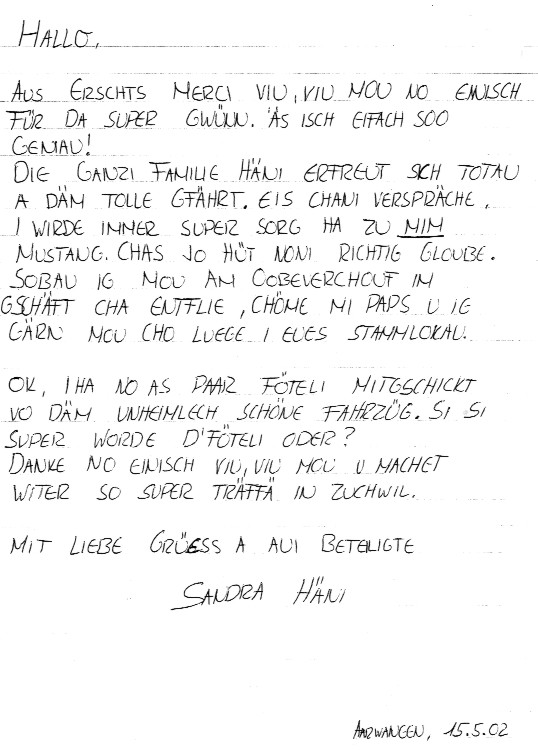 HALLO,
AUS ERSCHTS MERCI VIU, VIU MOU NO EINISCH
FÜR DA SUPER GWÜNN. ÄS ISCH EIFACH SOO
GENIAU!
DIE GANZI FAMILIE HÄNI ERFREUT SICH TOTAU
A DÄM TOLLE GFÄHRT. EIS CHANI VERSPRÄCHE,
I WIRDE IMMER SUPER SORG HA ZU MIM
MUSTANG. CHAS JO HÜT NONI RICHTIG GLOUBE.
SOBAU IG MOU AM COBEVERCHOUF IM
GSCHÄFT CHA ENTFLIE, CHÖME MI PAPS U IG
GÄRN MOU CHO LUEGE I EUES STAMMLOKAU.
OK, I HA NO AS PAAR FÖTELI MITGSCHICKT
VO DÄM UNHEIMLECH SCHÖNE FAHRZÜG. SI SI
SUPER WORDE D'FÖTELI ODER?
DANKE NO EINISCH VIU, VIU MOU U MACHET
WITER SO SUPER TRÄFFÄ IN ZUCHWIL.
MIT LIEBE GRÜESS A AUI BETEILIGTE
SANDRA HÄNI
AARWANGEN, 15.5.02